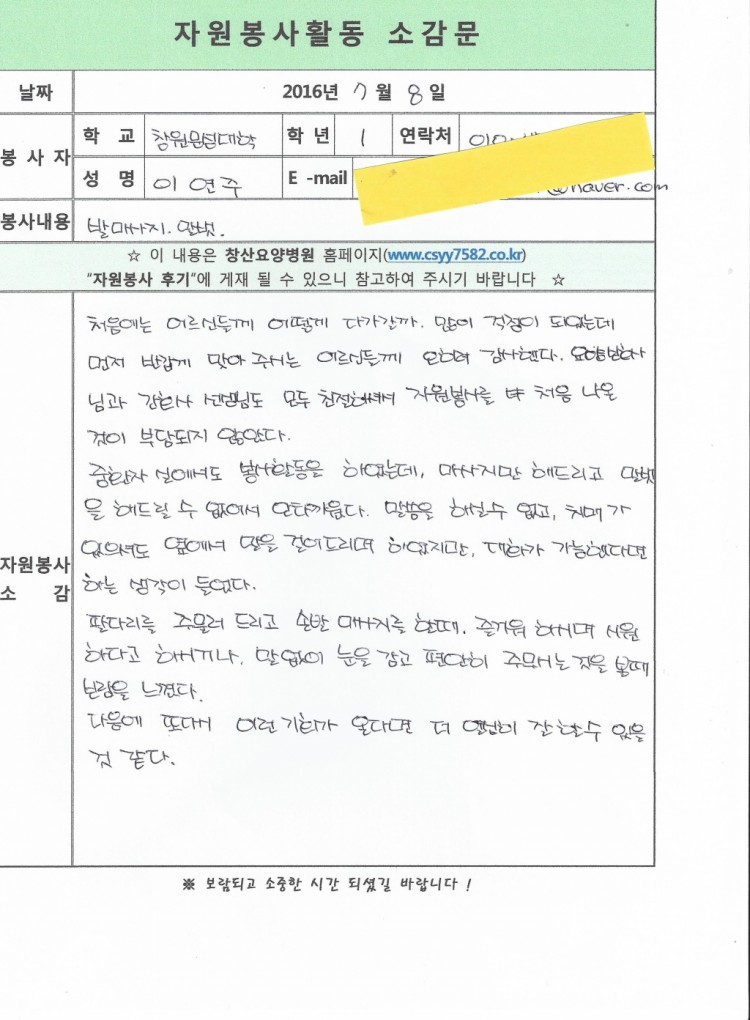 자원봉사활동 소감문
날짜 2016년 7월 8일
봉사자 학교 창원문성대학 학년 1 연락처 010
성명 이연주 E-mail @naver.com
봉사내용 발마사지. 말벗.
☆ 이 내용은 창산요양병원 홈페이지(www.csyy7582.co.kr)
"자원봉사 후기"에 게재 될 수 있으니 참고하여 주시기 바랍니다 ☆
자원봉사 소감
처음에는 어르신들께 어떻게 다가갈까. 많이 걱정이 되었는데
먼저 반갑게 맞아 주시는 어르신들께 오히려 감사했다. 요양보호사
님과 간호사 선생님도 모두 친절하셔서 자원봉사를 처음 나온
것이 부담되지 않았다.
중환자 실에서도 봉사활동을 하였는데, 마사지만 해드리고 말벗
을 해드릴 수 없어서 안타까웠다. 말씀을 하실수 없고, 치매가
있으셔도 옆에서 말을 걸어드리며 하였지만, 대화가 가능했다면
하는 생각이 들었다.
팔다리를 주물러 드리고 손발 마사지를 할때, 즐거워 하시며 시원
하다고 하시거나, 말없이 눈을 감고 편안히 주무시는 것을 볼때
보람을 느꼈다.
다음에 또다시 이런 기회가 온다면 더 열심히 잘 할수 있을
것 같다.
※ 보람되고 소중한 시간 되셨길 바랍니다 !